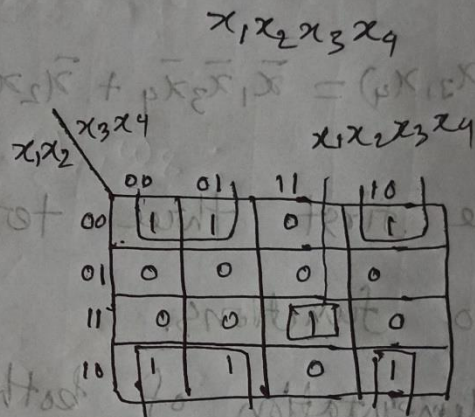 x₁x₂x₃x₄
x₃x₄
x₁x₂
x₁x₂x₃x₄
00 01 11 10
00 1 1 0 1
01 0 0 0 0
11 0 0 1 0
10 1 1 0 1